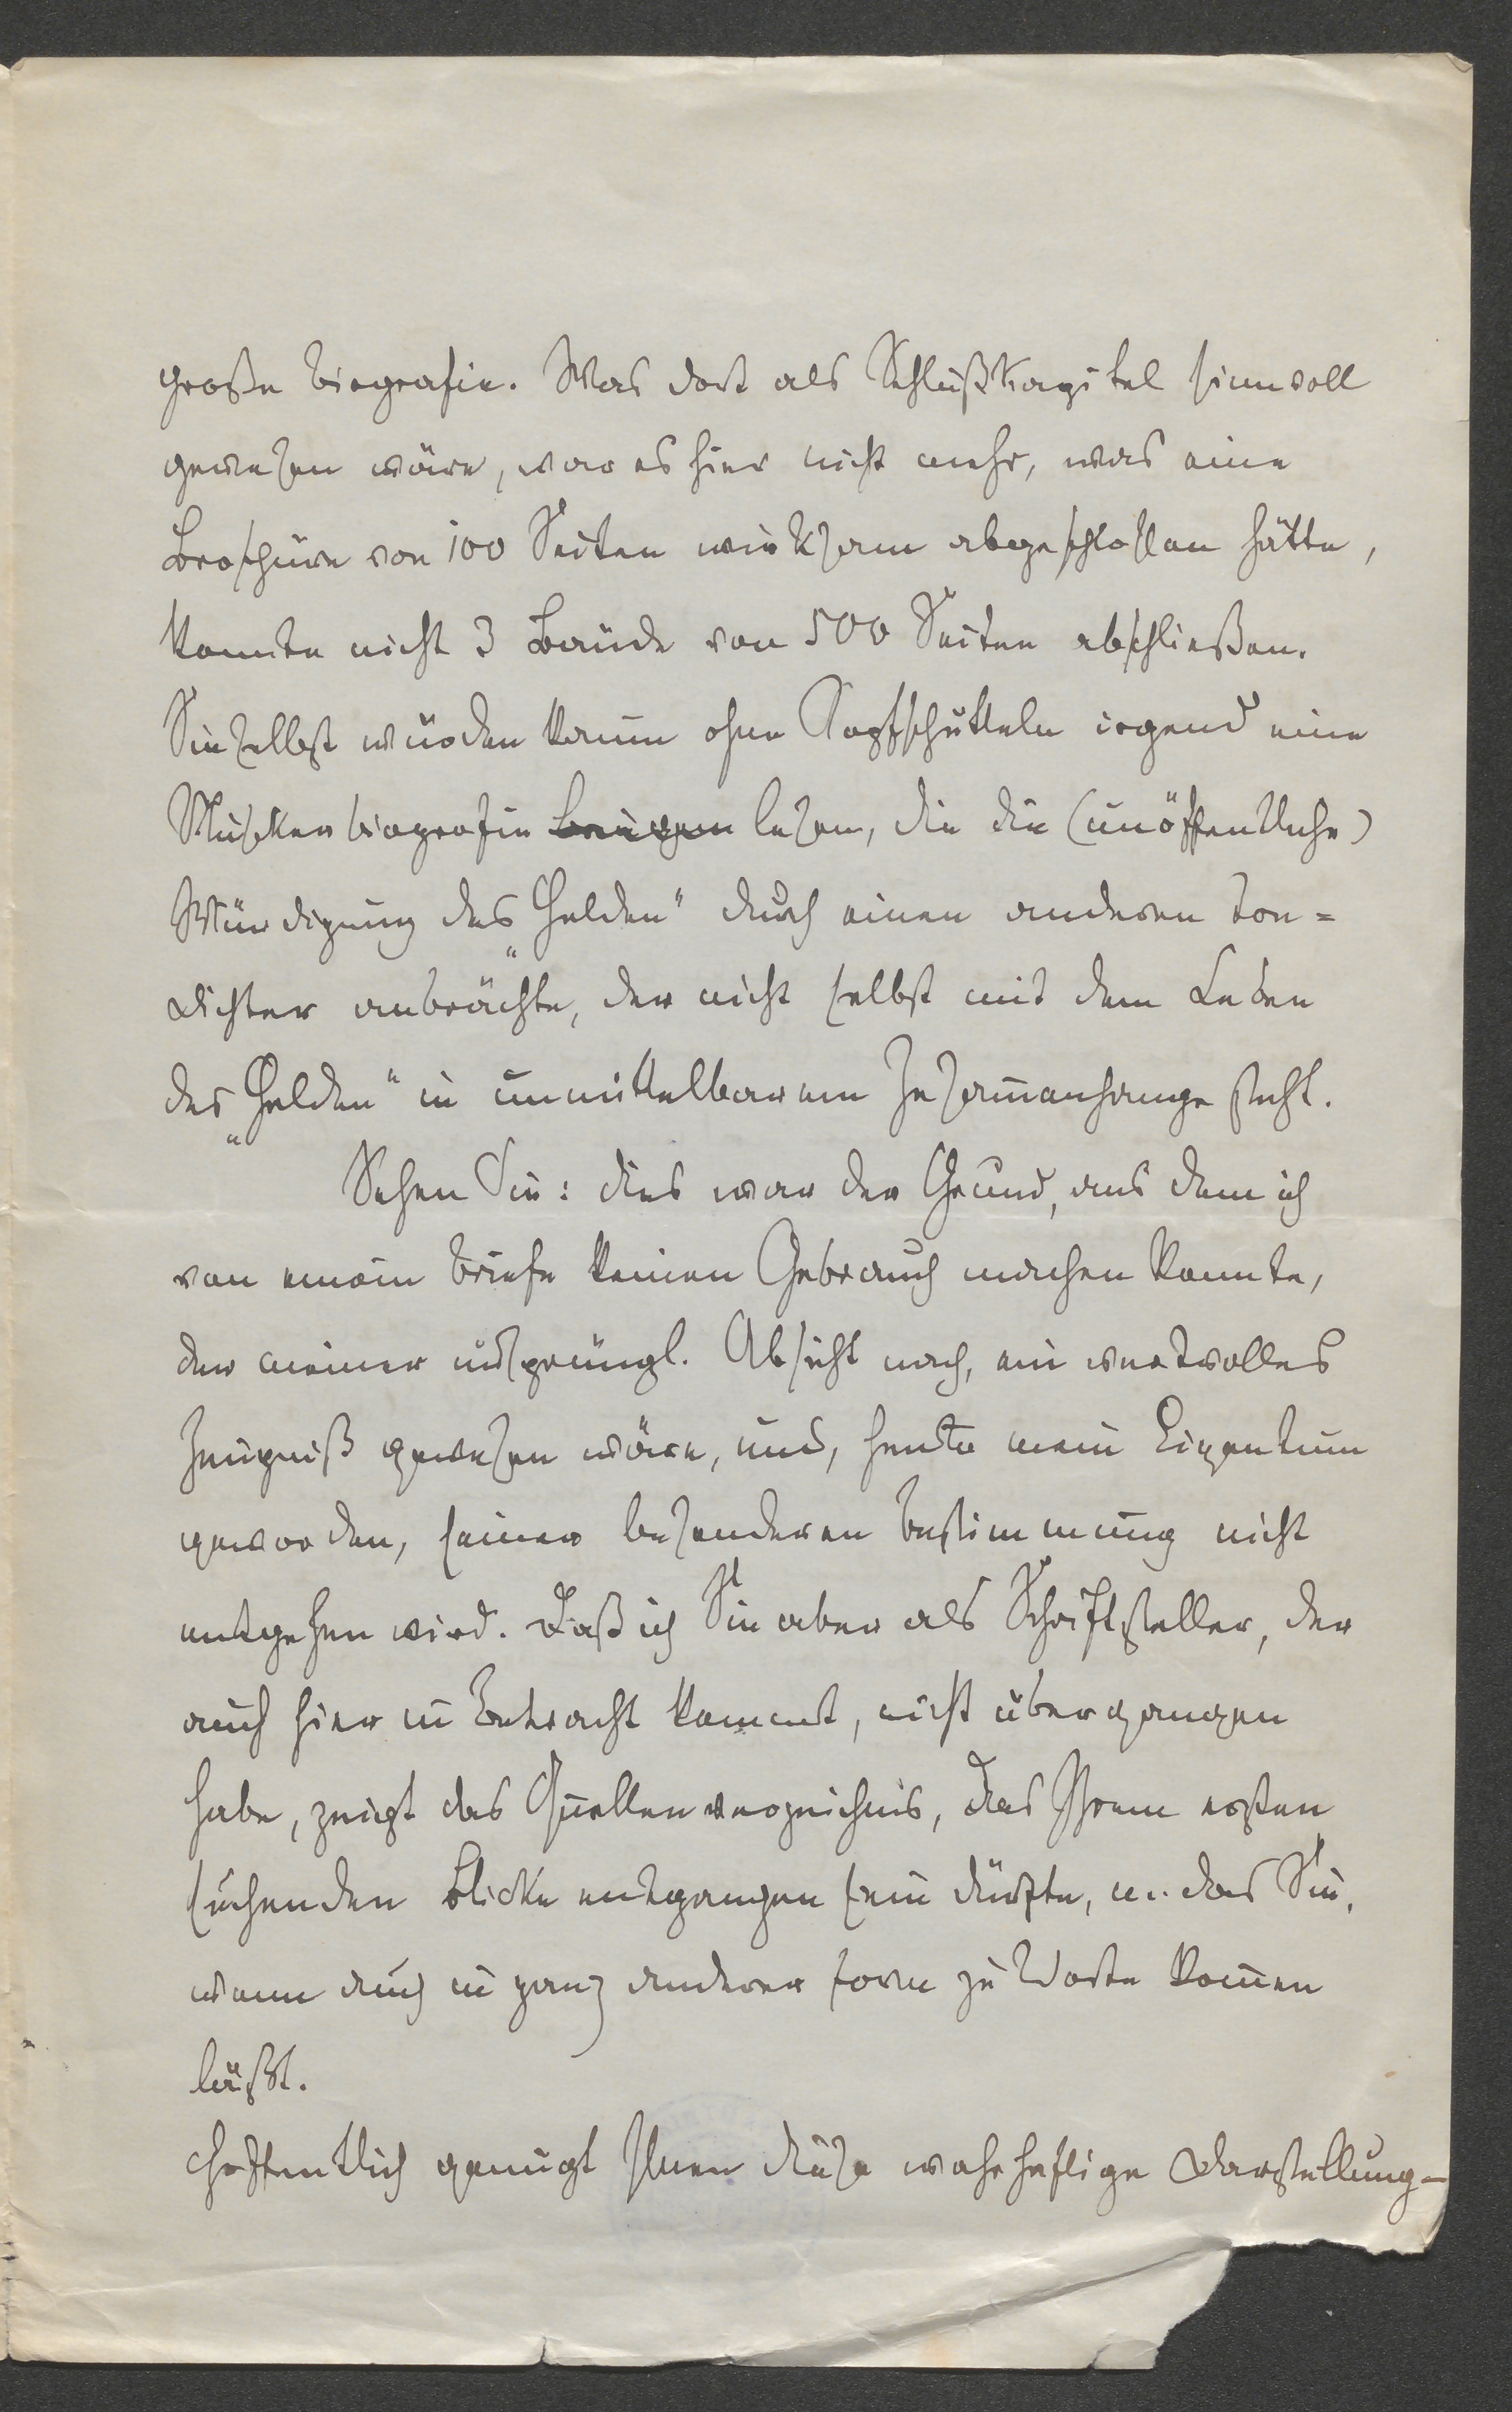 große Biografie. Was dort als Schlußkapitel sinnvoll
gewesen wäre, war es hier nicht mehr, was eine
Broschüre von 100 Seiten wirksam abgeschlossen hätte,
konnte nicht 3 Bände von 500 Seiten abschließen.
Sie selbst würden kaum ohne Kopfschütteln irgend eine
Musikerbiografie lesen, die die (unöffentliche)
Würdigung des „Helden" durch einen anderen Ton=
dichter anbrächte, der nicht selbst mit dem Leben
des „Helden" in unmittelbarem Zusam̄enhange steht.
Sehen Sie: dies war der Grund, aus dem ich
von einem Briefe keinen Gebrauch machen konnte,
der meiner ursprüngl. Absicht nach, ein wertvolles
Zeugniß gewesen wäre, und, heute mein Eigentum
geworden, seiner besonderen Bestimmung nicht
entgehen wird. Daß ich Sie aber als Schriftsteller, der
auch hier in Betracht kommt, nicht übergangen
habe, zeigt das Quellenverzeichnis, das Ihrem ersten
suchenden Blicke entgangen sein dürfte, u. das Sie,
wenn auch in ganz anderer Form zu Worte kom̄en
läßt.
Hoffentlich genügt Ihnen diese wahrhaftige Darstellung-